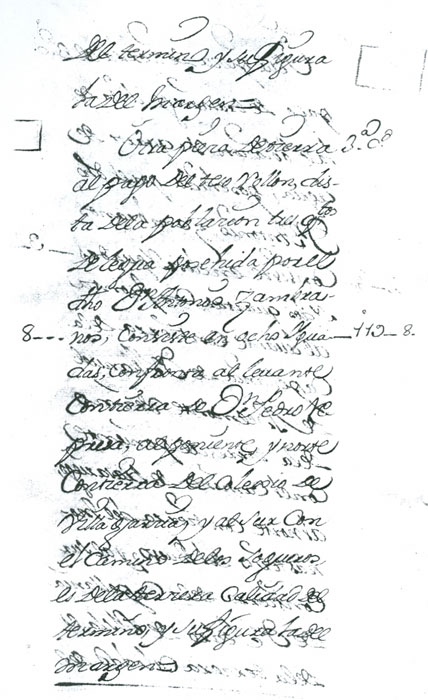 del termino, y su figura
la del margen =
Otra pieza de tierra 3.ª c.ᵈ
al pago del teso dista
ta de la poblacion tres q.tos
de legua posehida por el
dho Dⁿ Zambra-
8--- no, consiste en ocho Igua- 119--8.
das, confronta al levante
con tierra de Dⁿ Pedro
al poniente, y norte
con tierras del Colegio de
Villagarcia, y al sur con
el camino de los
es de la tercera calidad del
termino, y su figura la del
margen